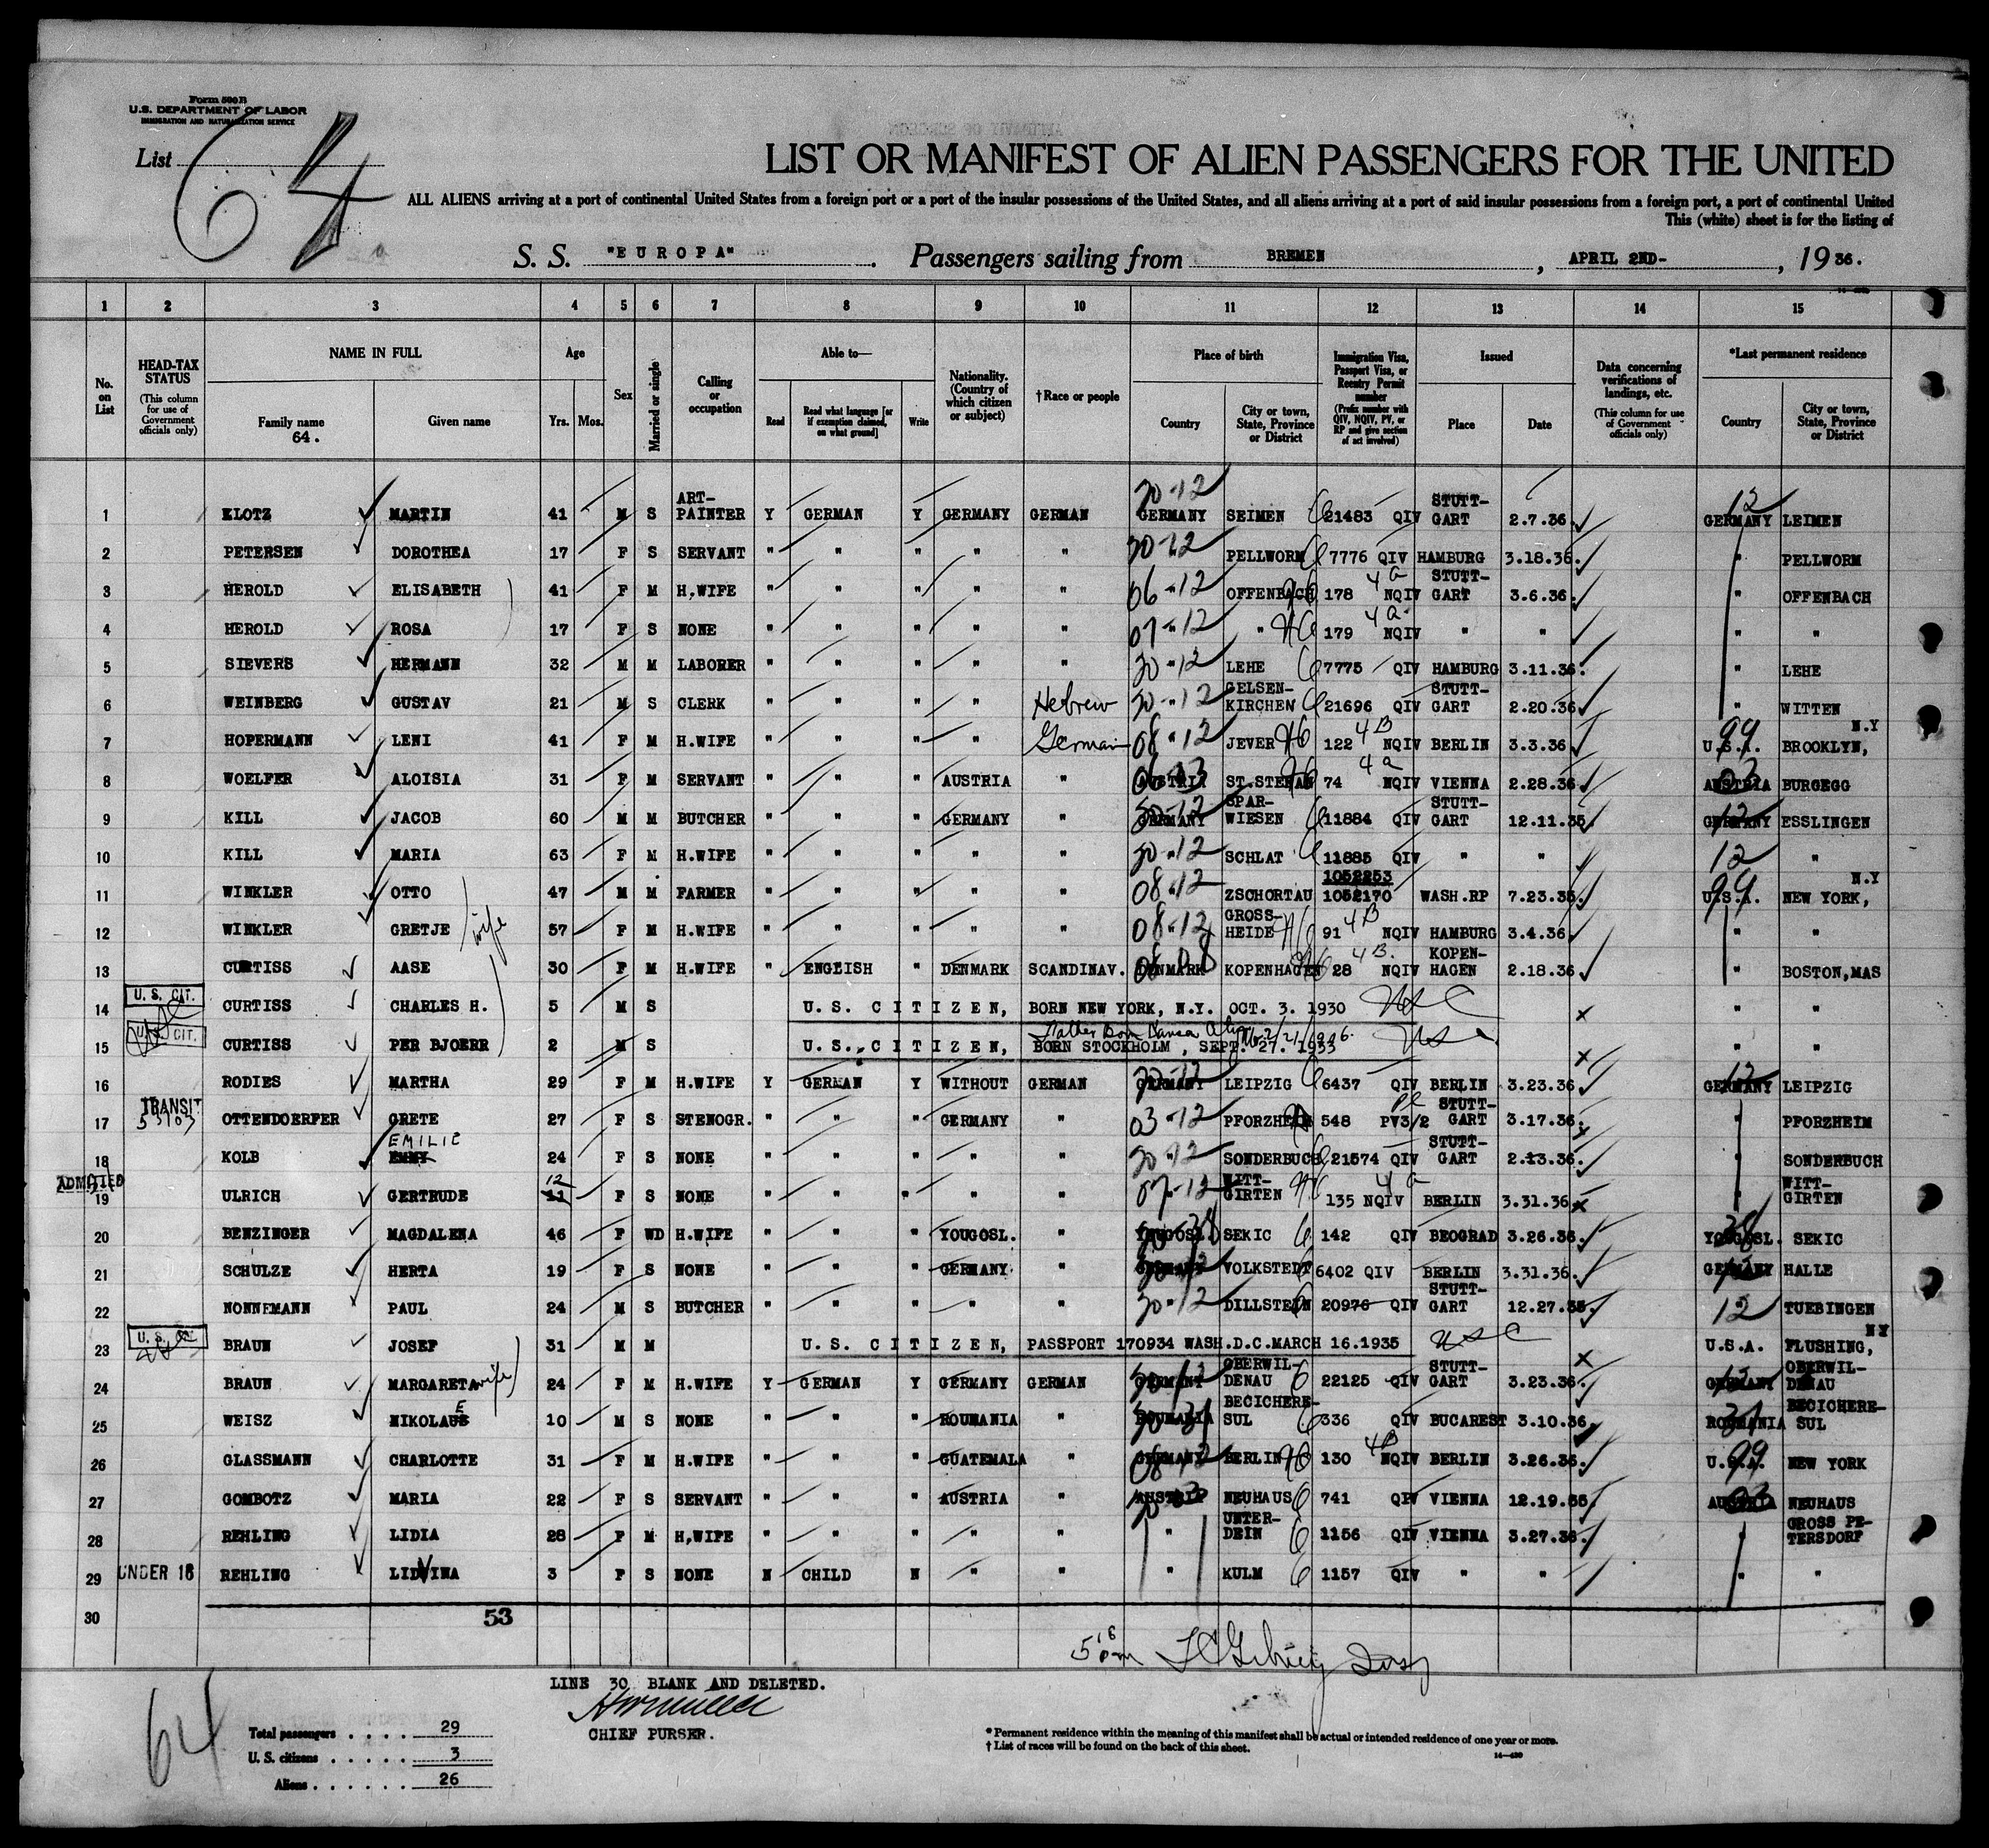 Form 500 B
U.S. DEPARTMENT OF LABOR
IMMIGRATION AND NATURALIZATION SERVICE
List 64
LIST OR MANIFEST OF ALIEN PASSENGERS FOR THE UNITED
ALL ALIENS arriving at a port of continental United States from a foreign port or a port of the insular possessions of the United States, and all aliens arriving at a port of said insular possessions from a foreign port, a port of continental United
This (white) sheet is for the listing of
S. S. "EUROPA". Passengers sailing from BREMEN, APRIL 2ND-, 1936.
1 2 3 4 5 6 7 8 9 10 11 12 13 14 15
No. on List
HEAD-TAX STATUS (This column for use of Government officials only)
NAME IN FULL
Family name 64.
Given name
Age
Yrs. Mos.
Sex
Married or single
Calling or occupation
Able to—
Read
Read what language [or if exemption claimed, on what ground]
Write
Nationality. (Country of which citizen or subject)
†Race or people
Place of birth
Country
City or town, State, Province or District
Immigration Visa, Passport Visa, or Reentry Permit number (Prefix number with QIV, NQIV, PV, or RP and give section of act involved)
Issued
Place
Date
Data concerning verifications of landings, etc. (This column for use of Government officials only)
*Last permanent residence
Country
City or town, State, Province or District
1 KLOTZ MARTIN 41 M S ART-PAINTER Y GERMAN Y GERMANY GERMAN 30-12 GERMANY SEIMEN 21483 QIV STUTT-GART 2.7.36. 12 GERMANY LEIMEN
2 PETERSEN DOROTHEA 17 F S SERVANT " " " " " 30-12 PELLWORM 7776 QIV HAMBURG 3.18.36. " PELLWORM
3 HEROLD ELISABETH 41 F M H.WIFE " " " " " 06-12 OFFENBACH 178 4a NQIV STUTT-GART 3.6.36. " OFFENBACH
4 HEROLD ROSA 17 F S NONE " " " " " 07-12 " 179 4a NQIV " " " "
5 SIEVERS HERMANN 32 M M LABORER " " " " " 30-12 LEHE 7775 QIV HAMBURG 3.11.36. " LEHE
6 WEINBERG GUSTAV 21 M S CLERK " " " " Hebrew 30-12 GELSEN-KIRCHEN 21696 QIV STUTT-GART 2.20.36. " WITTEN
7 HOPERMANN LENI 41 F M H.WIFE " " " " German 08-12 JEVER 122 4B NQIV BERLIN 3.3.36. 99 U.S.A. BROOKLYN, N.Y
8 WOELFER ALOISIA 31 F M SERVANT " " " AUSTRIA " 06-03 AUSTRIA ST.STEFAN 74 4a NQIV VIENNA 2.28.36. 03 AUSTRIA BURGEGG
9 KILL JACOB 60 M M BUTCHER " " " GERMANY " 30-12 GERMANY SPAR-WIESEN 11884 QIV STUTT-GART 12.11.35. 12 GERMANY ESSLINGEN
10 KILL MARIA 63 F M H.WIFE " " " " " 30-12 SCHLAT 11885 QIV " " 12 "
11 WINKLER OTTO 47 M M FARMER " " " " " 08-12 ZSCHORTAU 1052253 1052170 WASH.RP 7.23.35. 99 U.S.A. NEW YORK, N.Y
12 WINKLER GRETJE wife 57 F M H.WIFE " " " " " 08-12 GROSS-HEIDE 91 4B NQIV HAMBURG 3.4.36. " "
13 CURTISS AASE 30 F M H.WIFE " ENGLISH " DENMARK SCANDINAV. 08 08 DENMARK KOPENHAGEN 28 4B. NQIV KOPEN-HAGEN 2.18.36. " BOSTON,MAS
14 U. S. CIT. CURTISS CHARLES H. 5 M S U.S. CITIZEN, BORN NEW YORK, N.Y. OCT. 3. 1930 USC x " "
15 U.S. CIT. CURTISS PER BJOERR 2 M S U.S. CITIZEN, BORN STOCKHOLM, SEPT. 27. 1933 x " "
16 RODIES MARTHA 29 F M H.WIFE Y GERMAN Y WITHOUT GERMAN 30-12 GERMANY LEIPZIG 6437 QIV BERLIN 3.23.36. 12 GERMANY LEIPZIG
17 TRANSIT 53103 OTTENDOERFER GRETE 27 F S STENOGR. " " " GERMANY " 03-12 PFORZHEIM 548 PV3/2 STUTT-GART 3.17.36. " PFORZHEIM
18 KOLB EMILIE EMMY 24 F S NONE " " " " " 30-12 SONDERBUCH 21574 QIV STUTT-GART 2.13.36. " SONDERBUCH
19 ADMITTED ULRICH GERTRUDE 12 11 F S NONE " " " " " 07-12 WITT-GIRTEN 135 4a NQIV BERLIN 3.31.36. x " WITT-GIRTEN
20 BENZINGER MAGDALENA 46 F WD H.WIFE " " " YOUGOSL. " 30-38 YOUGOSL. SEKIC 142 QIV BEOGRAD 3.26.36. 38 YOUGOSL. SEKIC
21 SCHULZE HERTA 19 F S NONE " " " GERMANY " 30-12 GERMANY VOLKSTEDT 6402 QIV BERLIN 3.31.36. 12 GERMANY HALLE
22 NONNEMANN PAUL 24 M S BUTCHER " " " " " 30-12 DILLSTEIN 20976 QIV STUTT-GART 12.27.35. 12 " TUEBINGEN
23 U. S. CIT. BRAUN JOSEF 31 M M U.S. CITIZEN, PASSPORT 170934 WASH.D.C.MARCH 16.1935 USC x U.S.A. FLUSHING, NY
24 BRAUN MARGARETA wife 24 F M H.WIFE Y GERMAN Y GERMANY GERMAN 30-12 GERMANY OBERWIL-DENAU 22125 QIV STUTT-GART 3.23.36. 12 GERMANY OBERWIL-DENAU
25 WEISZ NIKOLAUS E 10 M S NONE " " " ROUMANIA " 30-31 ROUMANIA BECICHERE-SUL 336 QIV BUCAREST 3.10.36. 31 ROUMANIA BECICHERE-SUL
26 GLASSMANN CHARLOTTE 31 F M H.WIFE " " " GUATEMALA " 08-12 GERMANY BERLIN 130 4B NQIV BERLIN 3.26.36. 99 U.S.A. NEW YORK
27 GOMBOTZ MARIA 22 F S SERVANT " " " AUSTRIA " 30-03 AUSTRIA NEUHAUS 741 QIV VIENNA 12.19.35. 03 AUSTRIA NEUHAUS
28 REHLING LIDIA 28 F M H,WIFE " " " " " " UNTER-DEIN 1156 QIV VIENNA 3.27.36. " GROSS PE-TERSDORF
29 UNDER 16 REHLING LIDVINA 3 F S NONE N CHILD N " " " KULM 1157 QIV " " " "
30 53
5 16 pm
LINE 30 BLANK AND DELETED.
CHIEF PURSER.
64
Total passengers . . . . 29
U. S. citizens . . . . . 3
Aliens . . . . . . 26
* Permanent residence within the meaning of this manifest shall be actual or intended residence of one year or more.
† List of races will be found on the back of this sheet.
14—430